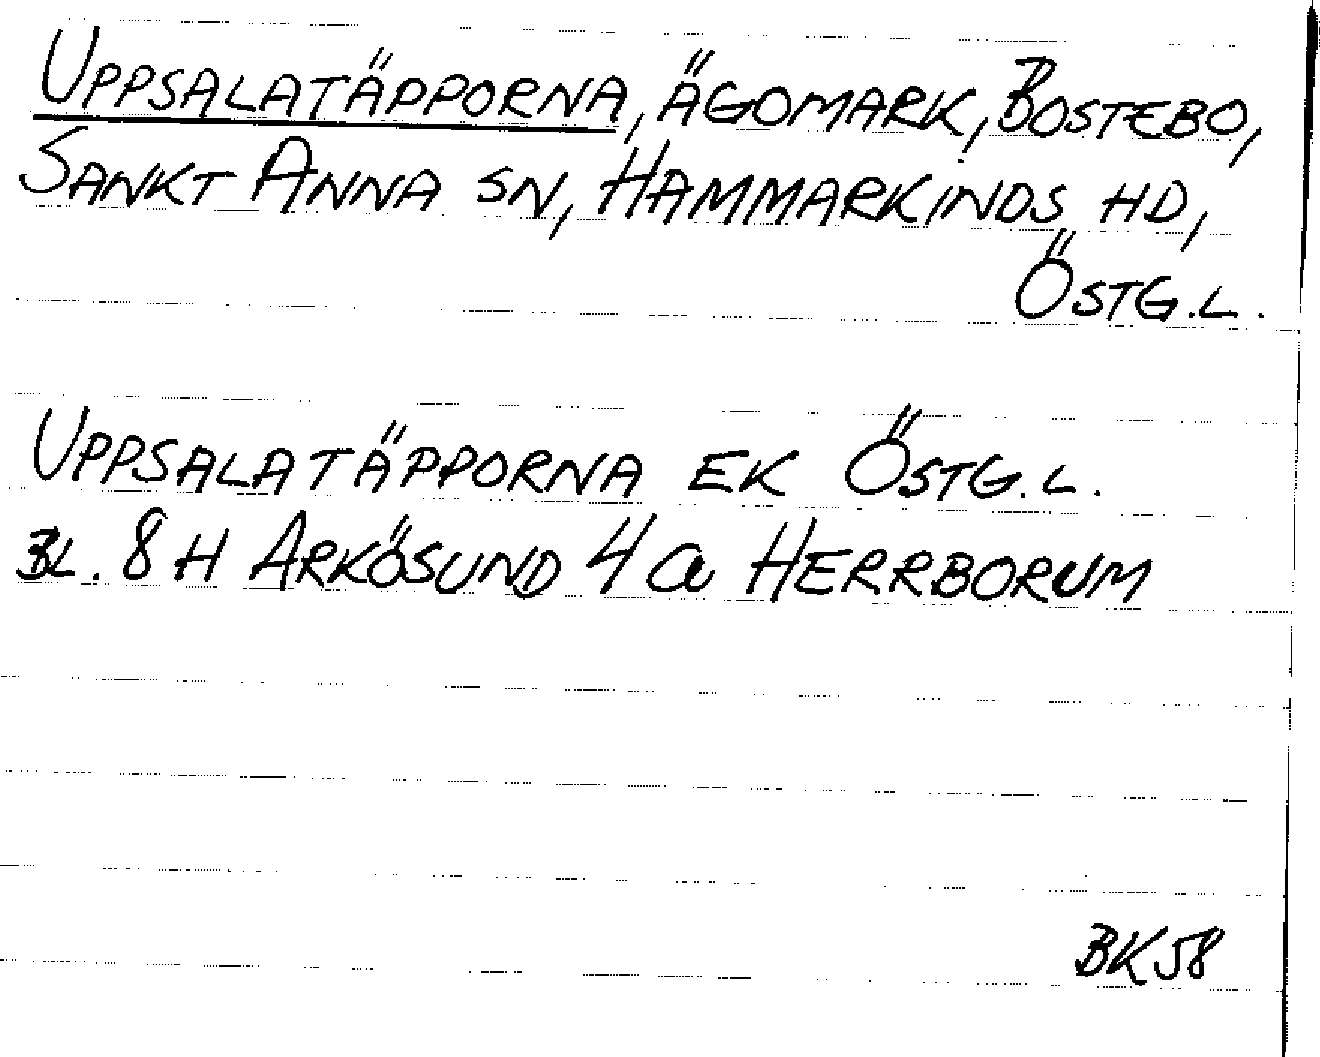 UPPSALATÄPPORNA, ÄGOMARK, BOSTEBO,
SANKT ANNA SN, HAMMARKINDS HD,
ÖSTG.L.
UPPSALATÄPPORNA EK ÖSTG.L.
BL. 8 H ARKÖSUND 4 a HERRBORUM
BK58